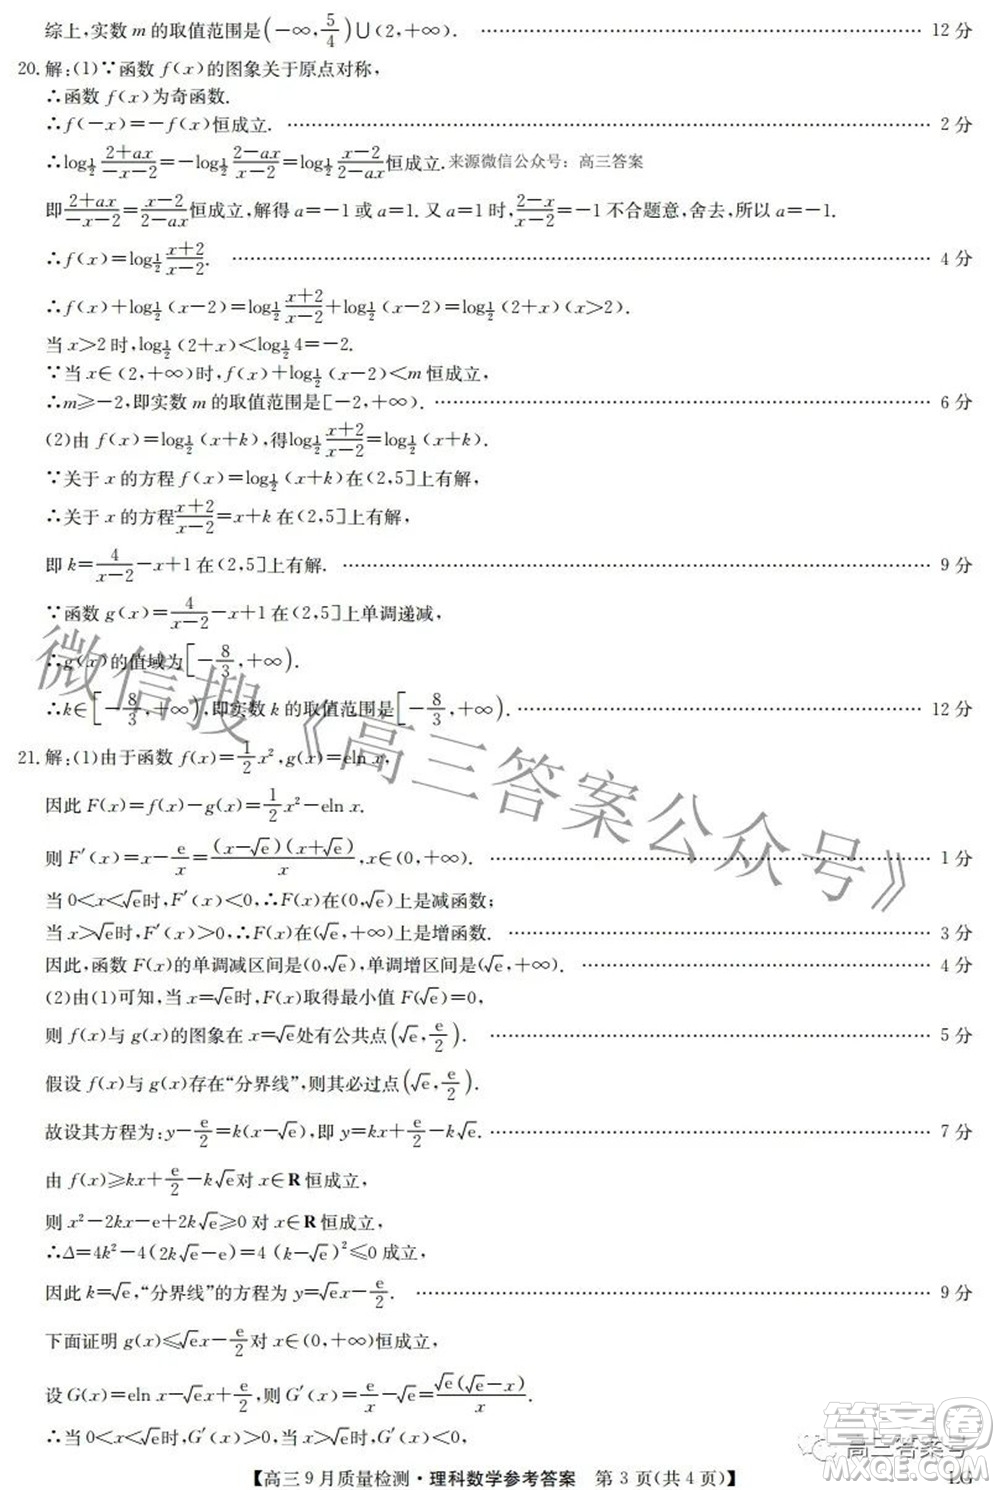 综上,实数 m 的取值范围是(−∞,5/4)∪(2,+∞). …… 12 分
20. 解:(1)∵函数 f(x)的图象关于原点对称,
∴函数 f(x)为奇函数.
∴f(−x)=−f(x)恒成立. …… 2 分
∴log_{1/2} (2+ax)/(−x−2)=−log_{1/2} (2−ax)/(x−2)=log_{1/2} (x−2)/(2−ax)恒成立. 来源微信公众号：高三答案
即(2+ax)/(−x−2)=(x−2)/(2−ax)恒成立,解得 a=−1 或 a=1. 又 a=1 时,(2−x)/(x−2)=−1 不合题意,舍去,所以 a=−1.
∴f(x)=log_{1/2} (x+2)/(x−2). …… 4 分
∴f(x)+log_{1/2}(x−2)=log_{1/2} (x+2)/(x−2)+log_{1/2}(x−2)=log_{1/2}(2+x)(x>2).
当 x>2 时,log_{1/2}(2+x)<log_{1/2}4=−2.
∵当 x∈(2,+∞)时,f(x)+log_{1/2}(x−2)<m 恒成立,
∴m≥−2,即实数 m 的取值范围是[−2,+∞). …… 6 分
(2)由 f(x)=log_{1/2}(x+k),得log_{1/2} (x+2)/(x−2)=log_{1/2}(x+k).
∵关于 x 的方程 f(x)=log_{1/2}(x+k)在(2,5]上有解,
∴关于 x 的方程(x+2)/(x−2)=x+k 在(2,5]上有解,
即 k=4/(x−2)−x+1 在(2,5]上有解. …… 9 分
∵函数 g(x)=4/(x−2)−x+1 在(2,5]上单调递减,
∴g(x)的值域为[−8/3,+∞).
∴k∈[−8/3,+∞),即实数 k 的取值范围是[−8/3,+∞). …… 12 分
21. 解:(1)由于函数 f(x)=1/2 x²,g(x)=eln x,
因此 F(x)=f(x)−g(x)=1/2 x²−eln x.
则 F′(x)=x−e/x=(x−√e)(x+√e)/x,x∈(0,+∞). …… 1 分
当 0<x<√e时,F′(x)<0,∴F(x)在(0,√e)上是减函数;
当 x>√e时,F′(x)>0,∴F(x)在(√e,+∞)上是增函数. …… 3 分
因此,函数 F(x)的单调减区间是(0,√e),单调增区间是(√e,+∞). …… 4 分
(2)由(1)可知,当 x=√e时,F(x)取得最小值 F(√e)=0,
则 f(x)与 g(x)的图象在 x=√e处有公共点(√e,e/2). …… 5 分
假设 f(x)与 g(x)存在“分界线”,则其必过点(√e,e/2).
故设其方程为:y−e/2=k(x−√e),即 y=kx+e/2−k√e. …… 7 分
由 f(x)≥kx+e/2−k√e对 x∈R恒成立,
则 x²−2kx−e+2k√e≥0 对 x∈R恒成立,
∴Δ=4k²−4(2k√e−e)=4(k−√e)²≤0 成立,
因此 k=√e,“分界线”的方程为 y=√ex−e/2. …… 9 分
下面证明 g(x)≤√ex−e/2对 x∈(0,+∞)恒成立,
设 G(x)=eln x−√ex+e/2,则 G′(x)=e/x−√e=√e(√e−x)/x.
∴当 0<x<√e时,G′(x)>0,当 x>√e时,G′(x)<0,
【高三 9 月质量检测·理科数学参考答案 第 3 页(共 4 页)】 LG
微信搜《高三答案公众号》
高三答案号
答案圈